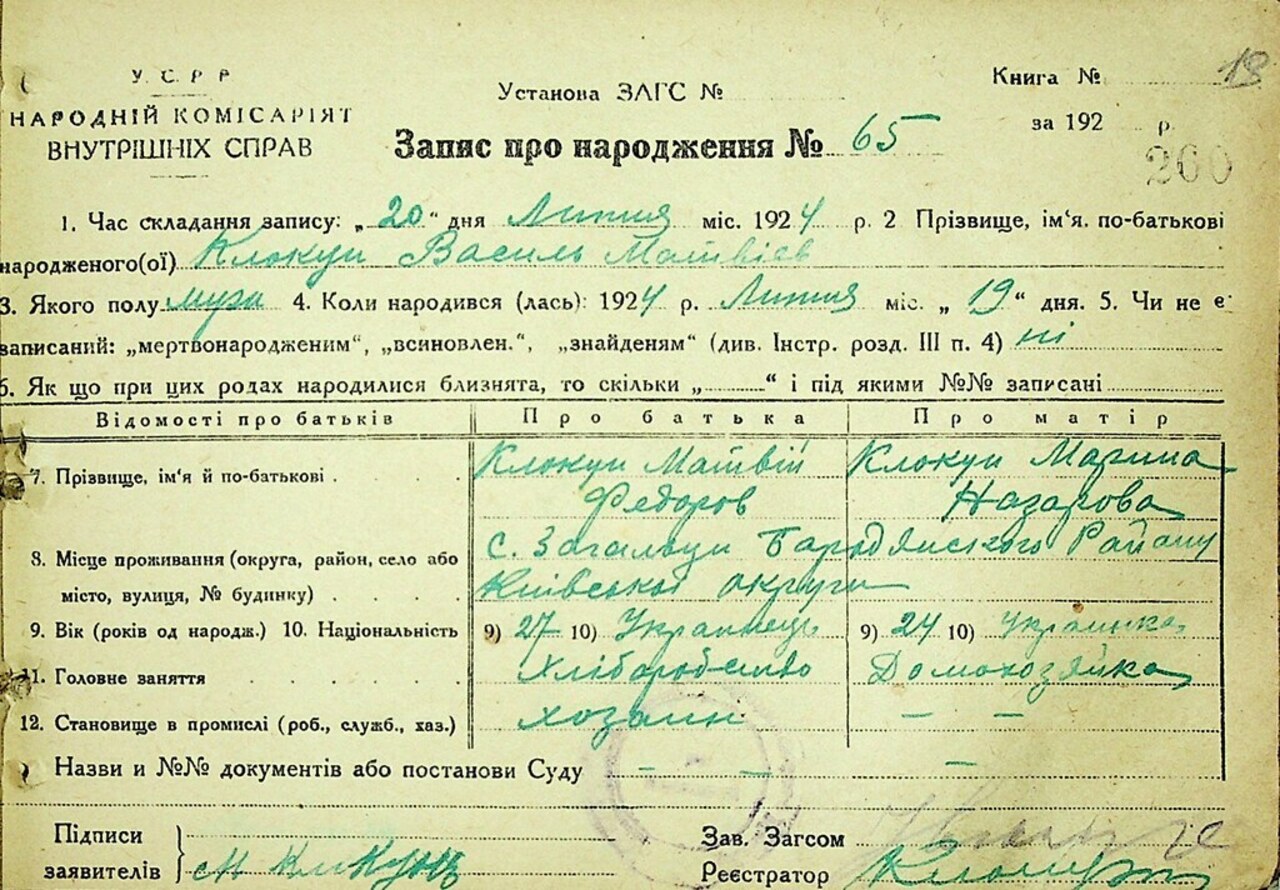 У. С. Р Р
НАРОДНІЙ КОМІСАРІЯТ
ВНУТРІШНІХ СПРАВ
Установа ЗАГС №
Запис про народження № 65
Книга № 18
за 192 р.
260
1. Час складання запису: „20" дня Липня міс. 1924 р. 2 Прізвище, ім'я, по-батькові
народженого(ої) Клокун Василь Матвіев
3. Якого полу муза 4. Коли народився (лась): 1924 р. Липня міс. „19" дня. 5. Чи не є
записаний: „мертвонародженим", „всиновлен.", „знайденям" (див. Інстр. розд. III п. 4) ні
6. Як що при цих родах народилися близнята, то скільки „ " і під якими №№ записані
Відомості про батьків Про батька Про матір
7. Прізвище, ім'я й по-батькові . . . . Клокун Матвій Клокун Марина
Федоров Назарова
8. Місце проживання (округа, район, село або с. Загальці Бародянского Району
місто, вулиця, № будинку) . . . . Київської округи
9. Вік (років од народж.) 10. Національність 9) 27 10) Українець 9) 24 10) Українка
11. Головне заняття . . . . . . Хліборобство Домохозяйка
12. Становище в промислі (роб., служб., хаз.) хозаин — —
Назви и №№ документів або постанови Суду — — —
Підписи
заявителів М Клокун
Зав. Загсом
Реєстратор